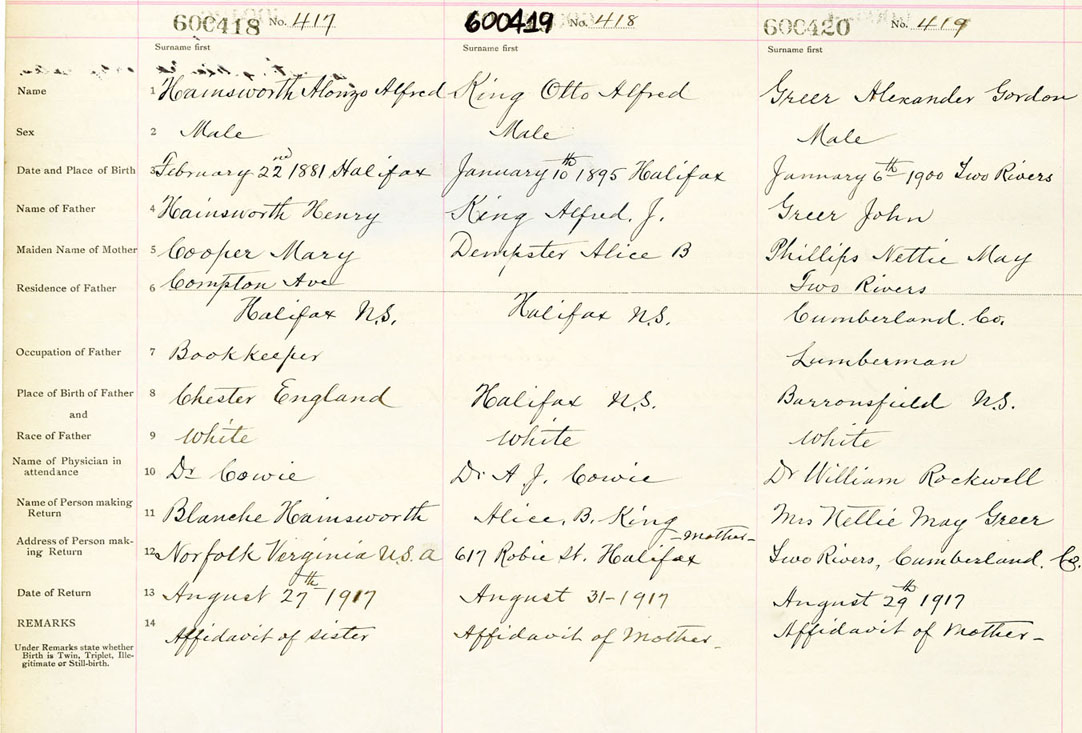 600418 No. 417 600419 No. 418 600420 No. 419
Surname first Surname first Surname first
Name 1 Hainsworth Alonzo Alfred King Otto Alfred Greer Alexander Gordon
Sex 2 Male Male Male
Date and Place of Birth 3 February 22nd 1881 Halifax January 10th 1895 Halifax January 6th 1900 Two Rivers
Name of Father 4 Hainsworth Henry King Alfred. J. Greer John
Maiden Name of Mother 5 Cooper Mary Dempster Alice B Phillips Nettie May
Residence of Father 6 Compton Ave Two Rivers
Halifax N.S. Halifax N.S. Cumberland. Co.
Occupation of Father 7 Bookkeeper Lumberman
Place of Birth of Father 8 Chester England Halifax N.S. Barronsfield N.S.
and
Race of Father 9 White White White
Name of Physician in
attendance 10 Dr Cowie Dr A. J. Cowie Dr William Rockwell
Name of Person making
Return 11 Blanche Hainsworth Alice. B. King Mrs Nellie May Greer
-Mother-
Address of Person mak-
ing Return 12 Norfolk Verginia U.S.A 617 Robie St. Halifax Two Rivers, Cumberland. Co.
Date of Return 13 August 27th 1917 August 31-1917 August 29th 1917
REMARKS 14 Affidavit of sister Affidavit of Mother- Affidavit of Mother-
Under Remarks state whether
Birth is Twin, Triplet, Ille-
gitimate or Still-birth.